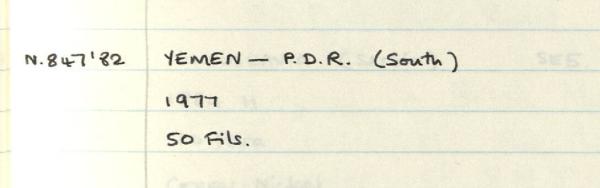 N.847'82 YEMEN — P.D.R. (South)
1977
50 Fils.